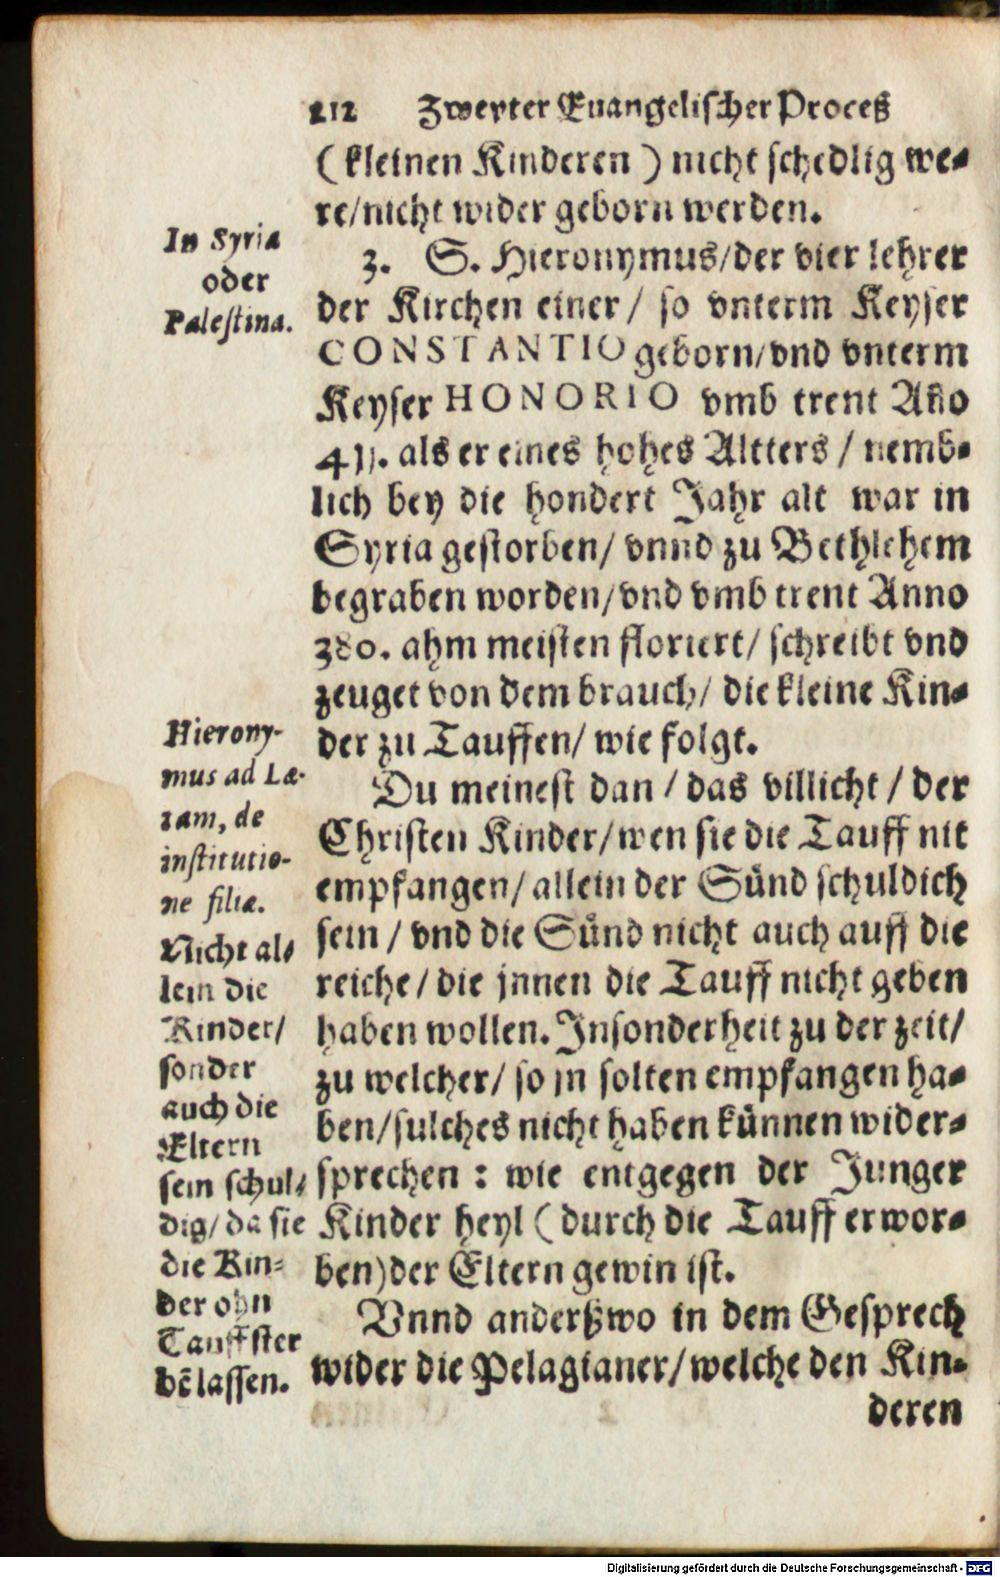 212 Zweyter Euangelischer Proceß
(kleinen Kinderen) nicht schedlig we-
re/nicht wider geborn werden.
In Syria
oder
Palestina.
3. S. Hieronymus/der vier lehrer
der Kirchen einer/ so vnterm Keyser
CONSTANTIO geborn/vnd vnterm
Keyser HONORIO vmb trent Año
411. als er eines hohes Altters/ nemb-
lich bey die hondert Jahr alt war in
Syria gestorben/ vnnd zu Bethlehem
begraben worden/vnd vmb trent Anno
380. ahm meisten floriert/ schreibt vnd
zeuget von dem brauch/ die kleine Kin-
der zu Tauffen/ wie folgt.
Hierony-
mus ad Læ-
tam, de
institutio-
ne filiæ.
Nicht al-
lein die
Kinder/
sonder
auch die
Eltern
sein schul-
dig/ da sie
die Kin-
der ohn
Tauff ster
bē lassen.
Du meinest dan/ das villicht/ der
Christen Kinder/wen sie die Tauff nit
empfangen/ allein der Sünd schuldich
sein/ vnd die Sünd nicht auch auff die
reiche/ die jnnen die Tauff nicht geben
haben wollen. Insonderheit zu der zeit/
zu welcher/ so jn solten empfangen ha-
ben/sulches nicht haben künnen wider-
sprechen: wie entgegen der Junger
Kinder heyl (durch die Tauff erwor-
ben) der Eltern gewin ist.
Vnnd anderßwo in dem Gesprech
wider die Pelagianer/welche den Kin-
deren
Digitalisierung gefördert durch die Deutsche Forschungsgemeinschaft - DFG